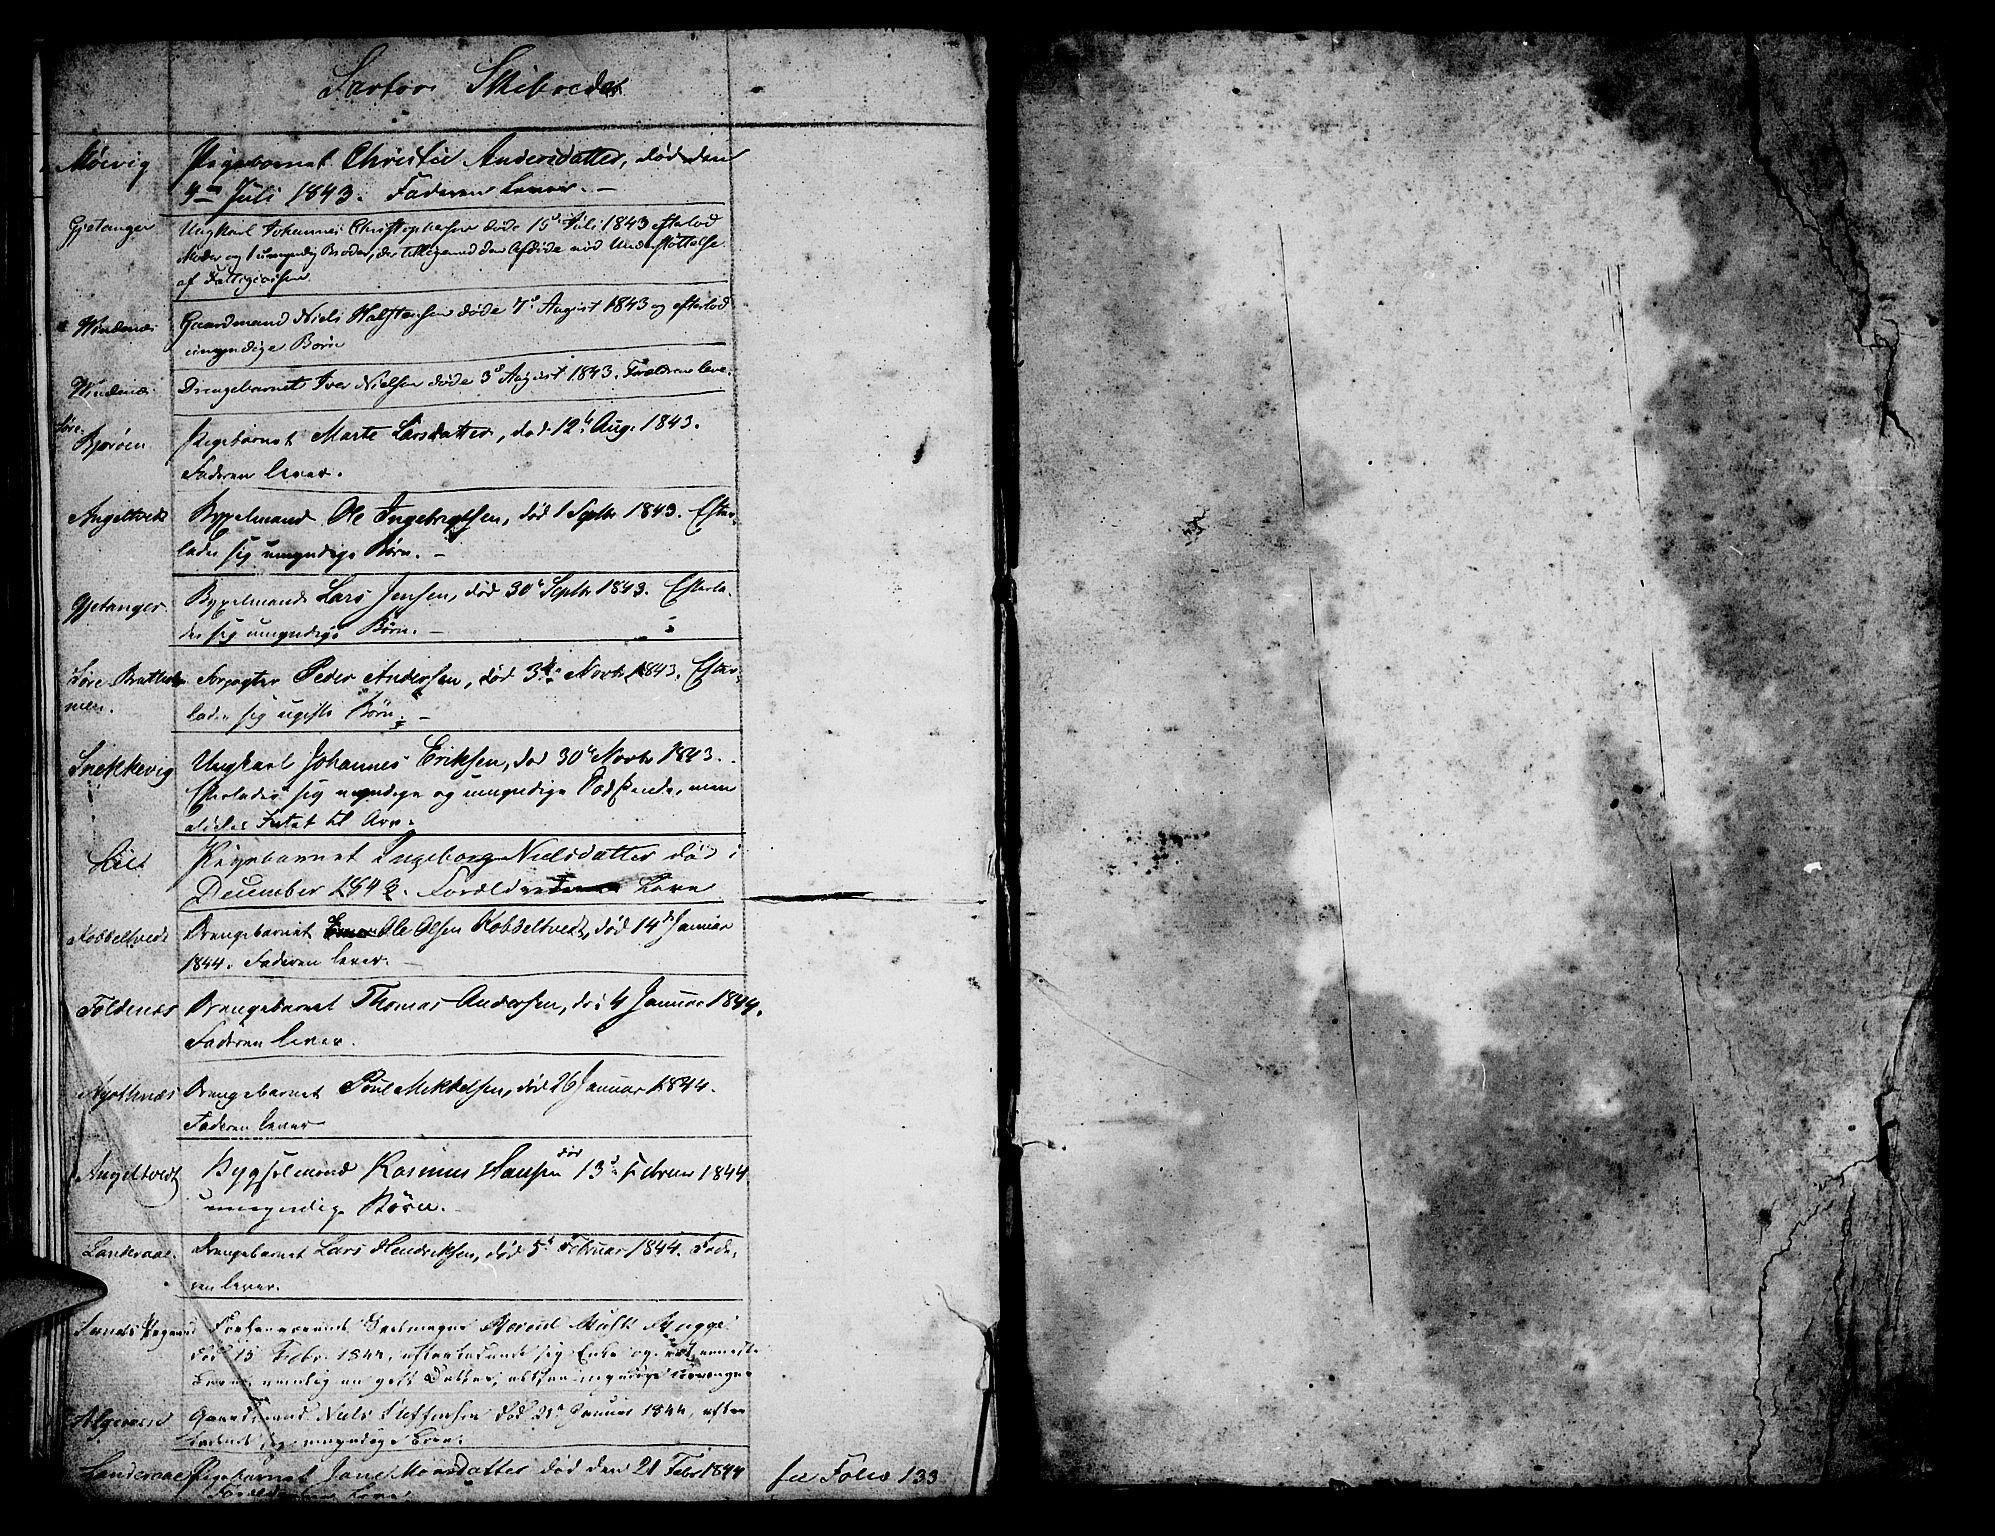 Sartors Skibredet
Møvig Pigebarnet Christie Andersdatter, død den
4de Juli 1843. Faderen lever. —
Gjetanger Ungkarl Johannes Christophersen døde 15de Juli 1843 efterlod
Moder og 1 umyndig Broder, der tilligemed den Afdøde nød Understøttelse
af Fattigcassen
Windenæs Gaardmand Niels Halstensen døde 7de August 1843 og efterlod
umyndige Børn
Windenæs Drengebarnet Iver Nielsen døde 3de August 1843. Forældrene leve.
Søre
Bjorøen Pigebarnet Marte Larsdatter, død 12te Aug. 1843.
Faderen lever.
Angeltvedt Bygselmand Ole Ingebrigtsen, død 1 Septbr 1843. Efter-
lader sig umyndige Børn. —
Gjetanger Bygselmand Lars Jensen, død 30te Septbr 1843. Efterla-
der sig umyndige Børn. —
Søre Bratholmen Forpagter Peder Andersen, død 3die Novbr 1843. Efter-
lader sig ugifte Børn. —
Snekkevig Ungkarl Johannes Eriksen, død 30te Novbr 1843.
Efterlader sig myndige og umyndige Sødskende, men
aldeles Intet til Arv.
Lie Pigebarnet Ingeborg Nielsdatter død i
December 1843. Forældrene leve
Kobbeltvedt Drengebarnet Ole Olsen Kobbeltvedt, død 14de Januar
1844. Faderen lever. —
Foldenæs Drengebarnet Thomas Andersen, død 4 Januar 1844.
Faderen lever.
Knathnæs Drengebarnet Poul Mikkelsen, død 26 Januar 1844.
Faderen lever
Angeltvedt Bygselmand Rasmus Hansen død 13de Februar 1844
umyndige Børn.
Landeraae. Drengebarnet Lars Hendriksen, død 5te Februar 1844. Fade-
ren lever.
Forhenværende Berent Mugge
død 15 Febr. 1844, efterladende sig Enke og
Børn, nemlig en gift Datter,
Algerøen Gaardmand Niels Steffensen død 21de Januar 1844, efter
ladende sig umyndige Børn.
Landeraae Pigebarnet Jane Monsdatter død den 21 Febr 1844 see Folio 133
Forældrene leve